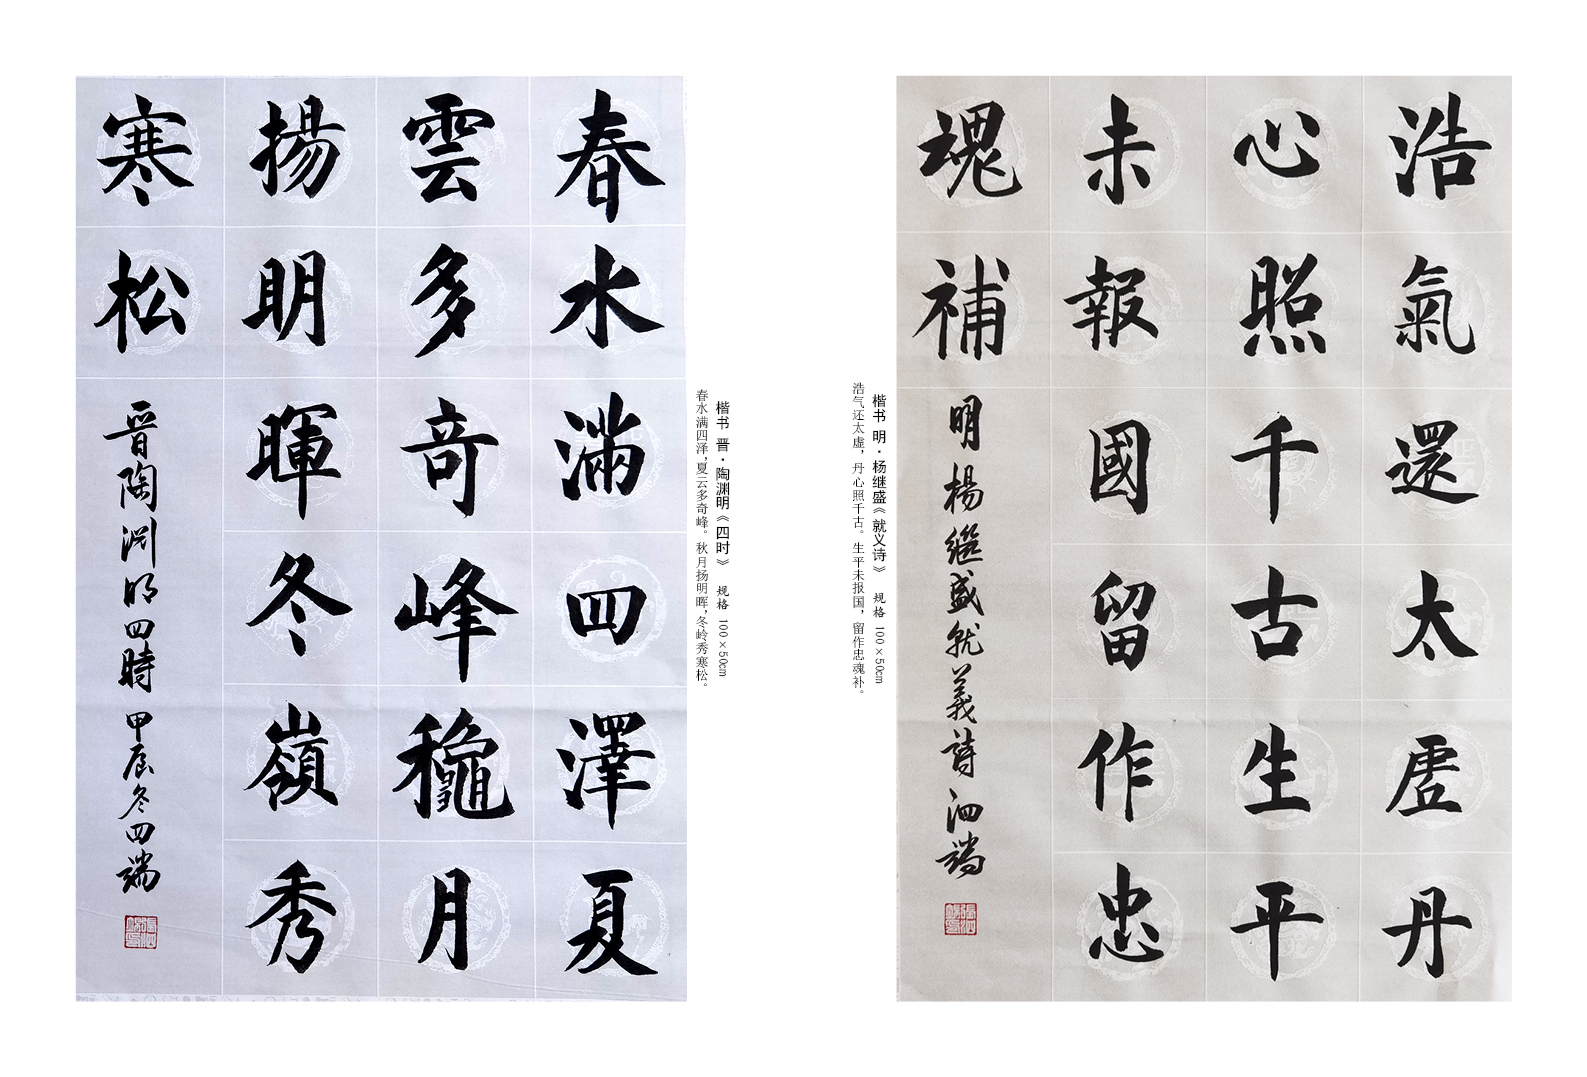 春水滿四澤夏
雲多奇峰龝月
揚明暉冬嶺秀
寒松
晉陶淵明四時 甲辰冬四端
楷书 晋·陶渊明《四时》 规格 100×50cm
春水满四泽，夏云多奇峰。秋月扬明晖，冬岭秀寒松。
浩氣還太虛丹
心照千古生平
未報國留作忠
魂補
明楊繼盛就義詩 泗端
楷书 明·杨继盛《就义诗》 规格 100×50cm
浩气还太虚，丹心照千古。生平未报国，留作忠魂补。